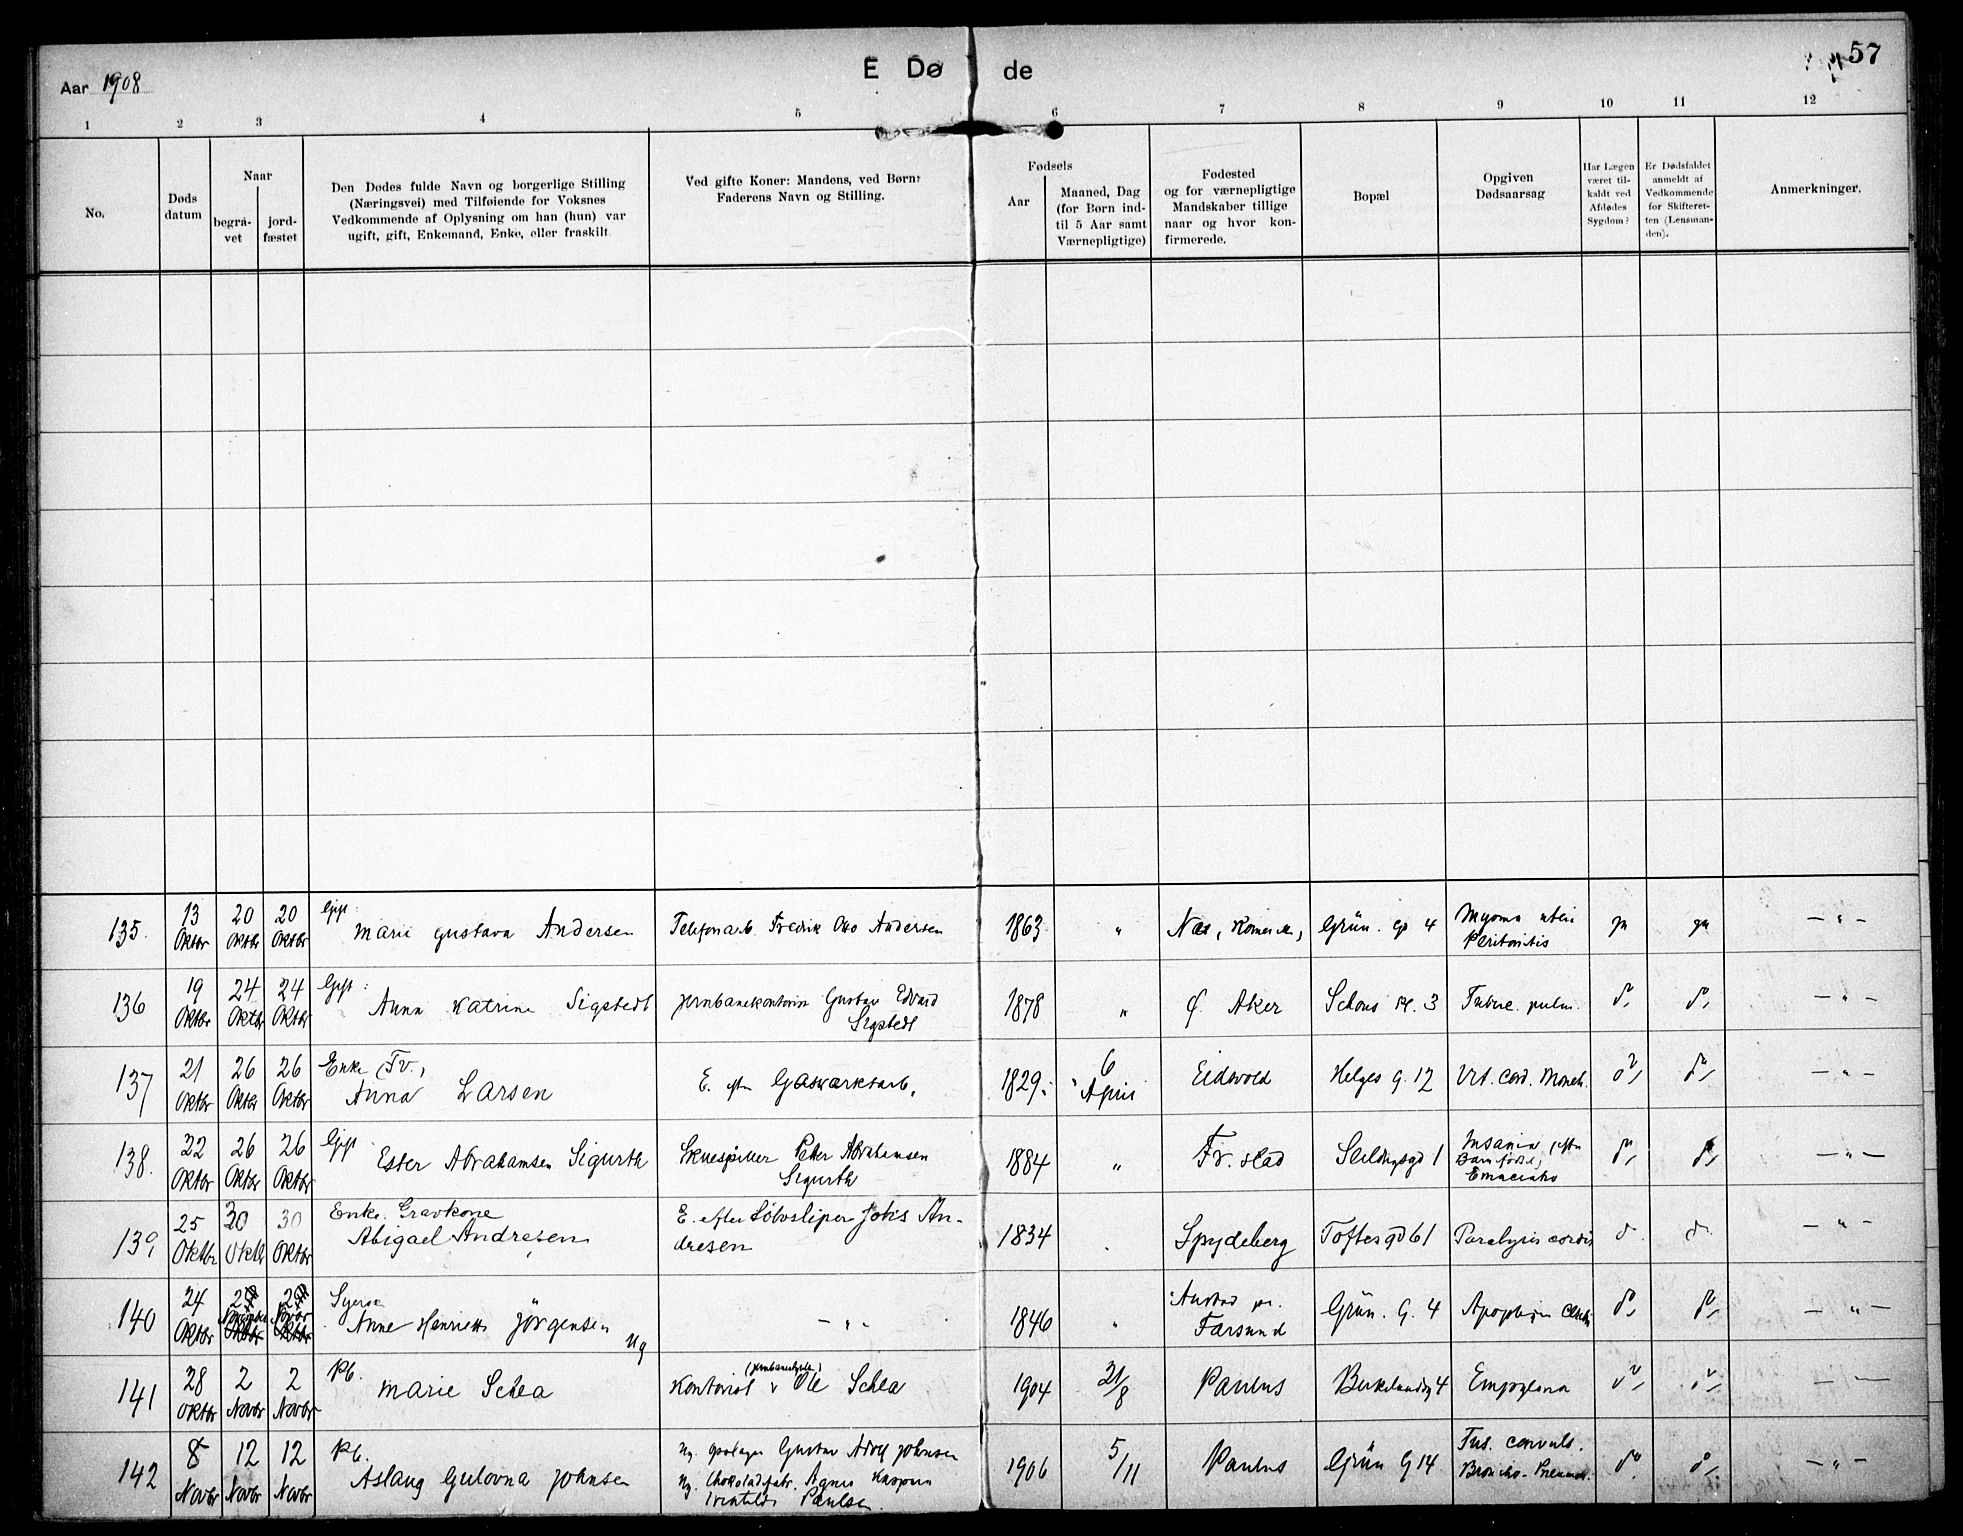 57
Aar 1908
E Dø de
1 2 3 4 5 6 7 8 9 10 11 12
No.
Døds datum
Naar
begra-vet
jord-fæstet
Den Dødes fulde Navn og borgerlige Stilling
(Næringsvei) med Tilføiende for Voksnes
Vedkommende af Oplysning om han (hun) var
ugift, gift, Enkemand, Enke, eller fraskilt.
Ved gifte Koner: Mandens, ved Børn:
Faderens Navn og Stilling.
Fødsels
Aar
Maaned, Dag
(for Børn ind-
til 5 Aar samt
Værnepligtige)
Fødested
og for værnepligtige
Mandskaber tillige
naar og hvor kon-
firmerede.
Bopæl
Opgiven
Dødsaarsag
Har Lægen
været til-
kaldt ved
Afdødes
Sygdom?
Er Dødsfaldet
anmeldt af
Vedkommende
for Skifteret-
ten (Lensman-
den).
Anmerkninger.
135. 13 Oktbr 20 Oktbr 20 Oktbr Gift: Marie Gustava Andersen Telefonarb. Fredrik Otto Andersen 1863 " Nes, Romerike, Grün. G 4 Myoma uteri Peritonitis ja ja — " —
136 19 Oktbr 24 Oktbr 24 Oktbr Gift: Anna Katrine Sigstedt Jernbanekontorist Gustav Edvard Sigstedt 1878 " Ø. Aker Schous pl. 3 Tuberc. pulm. do, do, — " —
137 21 Oktbr 26 Oktbr 26 Oktbr Enke (Fv., Anna Larsen E. efter Gasværksarb. 1829. 6 April Eidsvold Helges G. 12 Vit. cord. Bronch. do, do, — " —
138. 22 Oktbr 26 Oktbr 26 Oktbr Gift Ester Abrahamsen Sigurth Skuespiller Peter Abrahamsen Sigurth 1884 " Fr. stad Seilduksgd 1 Insania (efter Barnfødsel, Emaciatio do, do, — " —
139 25 Oktbr 30 Oktbr 30 Oktbr Enke. Gravkone Abigael Andresen E. efter Sölvsliper Johs An-dresen 1834 Spydeberg Toftesgd 61 Paralysis cordis do. do. — " —
140 24 Oktbr 2 Novbr 2 Novbr Syerske Anne Henriette Jörgensen Ug — " — 1846 " Farsund Grün. G. 4 Apoplexia do, do, — " —
141 28 Oktbr 2 Novbr 2 Novbr Pb. Marie Schea Kontorist v (Jernbanestyrelse) Ole Schea 1904 21/8 Paulus Birkelundsg 4 Empyema do, do, — " —
142 8 Novbr 12 Novbr 12 Novbr Pb. Aslaug Gulovna Johnsen Ug. Gustav Adolf Johnsen Ug. Chokoladefabr. Agnes Paulsen. 1906 5/11 Paulus Grün G 14 Tus. convuls. Broncho-Pneumoni. do. do, — " —